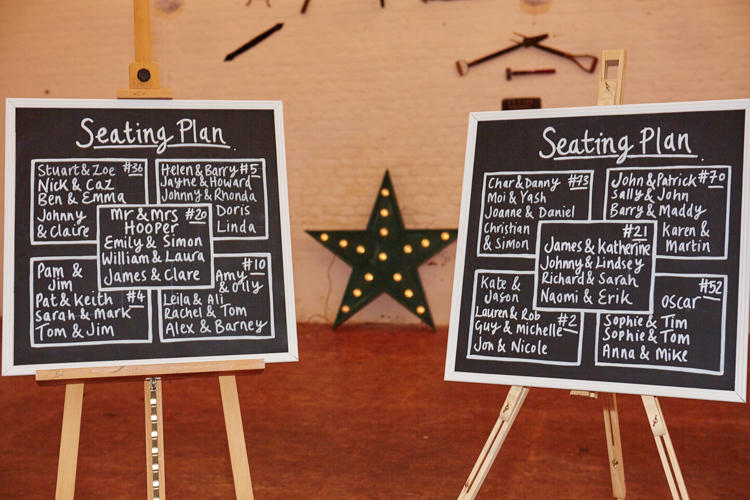 Seating Plan
Stuart & Zoe #36
Nick & Caz
Ben & Emma
Johnny
& Claire
Helen & Barry #5
Jayne & Howard
Johnny & Rhonda
Doris
Linda
Mr & Mrs #20
Hooper
Emily & Simon
William & Laura
James & Clare
Pam &
Jim
Pat & Keith #4
Sarah & Mark
Tom & Jim
#10
Amy
& Olly
Leila & Ali
Rachel & Tom
Alex & Barney
Seating Plan
Char & Danny #73
Moi & Yash
Joanne & Daniel
Christian
& Simon
John & Patrick #70
Sally & John
Barry & Maddy
Karen &
Martin
#21
James & Katherine
Johnny & Lindsey
Richard & Sarah
Naomi & Erik
Kate &
Jason
Lauren & Rob
Guy & Michelle #2
Jon & Nicole
#52
Oscar
Sophie & Tim
Sophie & Tom
Anna & Mike